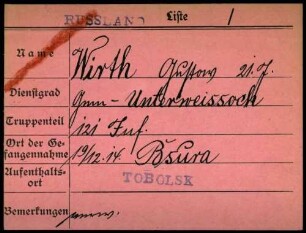 RUSSLAND Liste 1
Name Wirth Gustav 21. J.
Dienstgrad Gmn - Unterweissach
Truppenteil 121 Inf.
Ort der Ge-
fangennahme 19/12.14. Bsura
Aufenthalts-
ort TOBOLSK
Bemerkungen